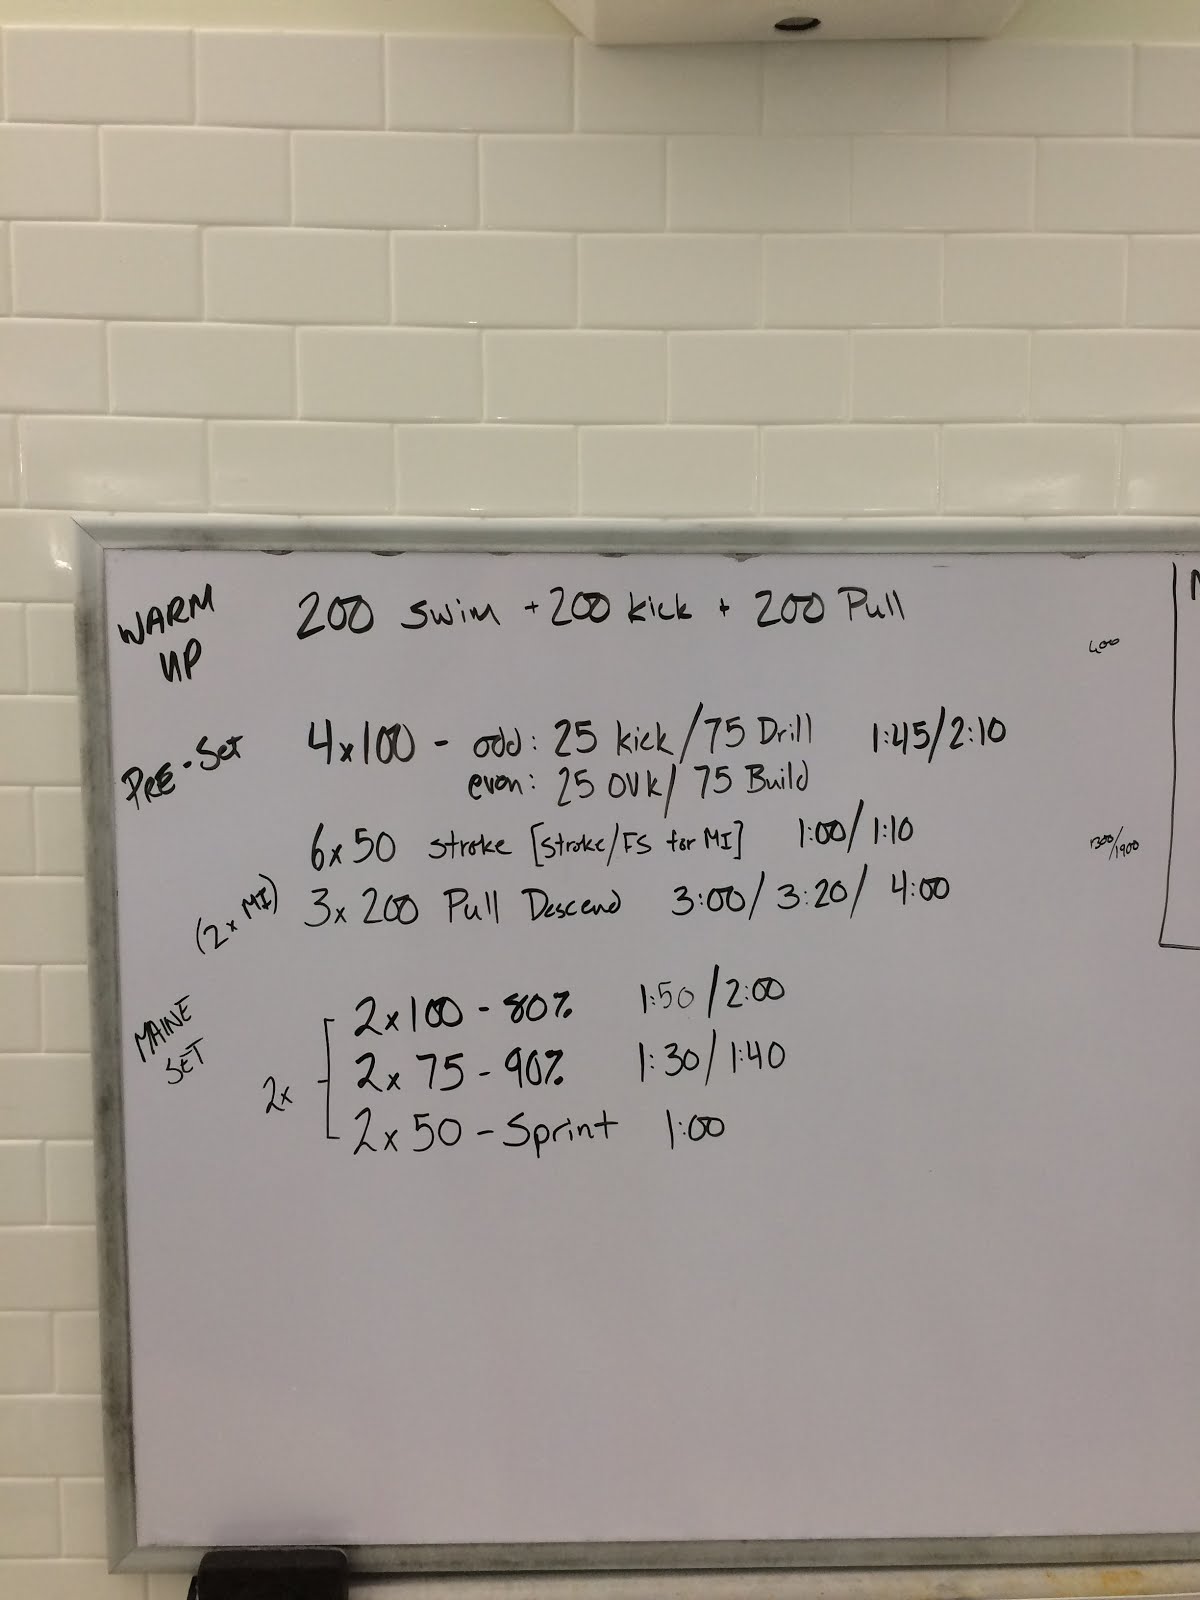 WARM UP 200 Swim + 200 kick + 200 Pull
600
PRE-Set 4x100 - odd: 25 kick/75 Drill 1:45/2:10
even: 25 OVK/ 75 Build
6x50 stroke [Stroke/FS for MI] 1:00/1:10
1300/1900
(2x MI) 3x200 Pull Descend 3:00/3:20/4:00
MAINE SET
2x
2x100 - 80% 1:50/2:00
2x 75 - 90% 1:30/1:40
2x50 - Sprint 1:00